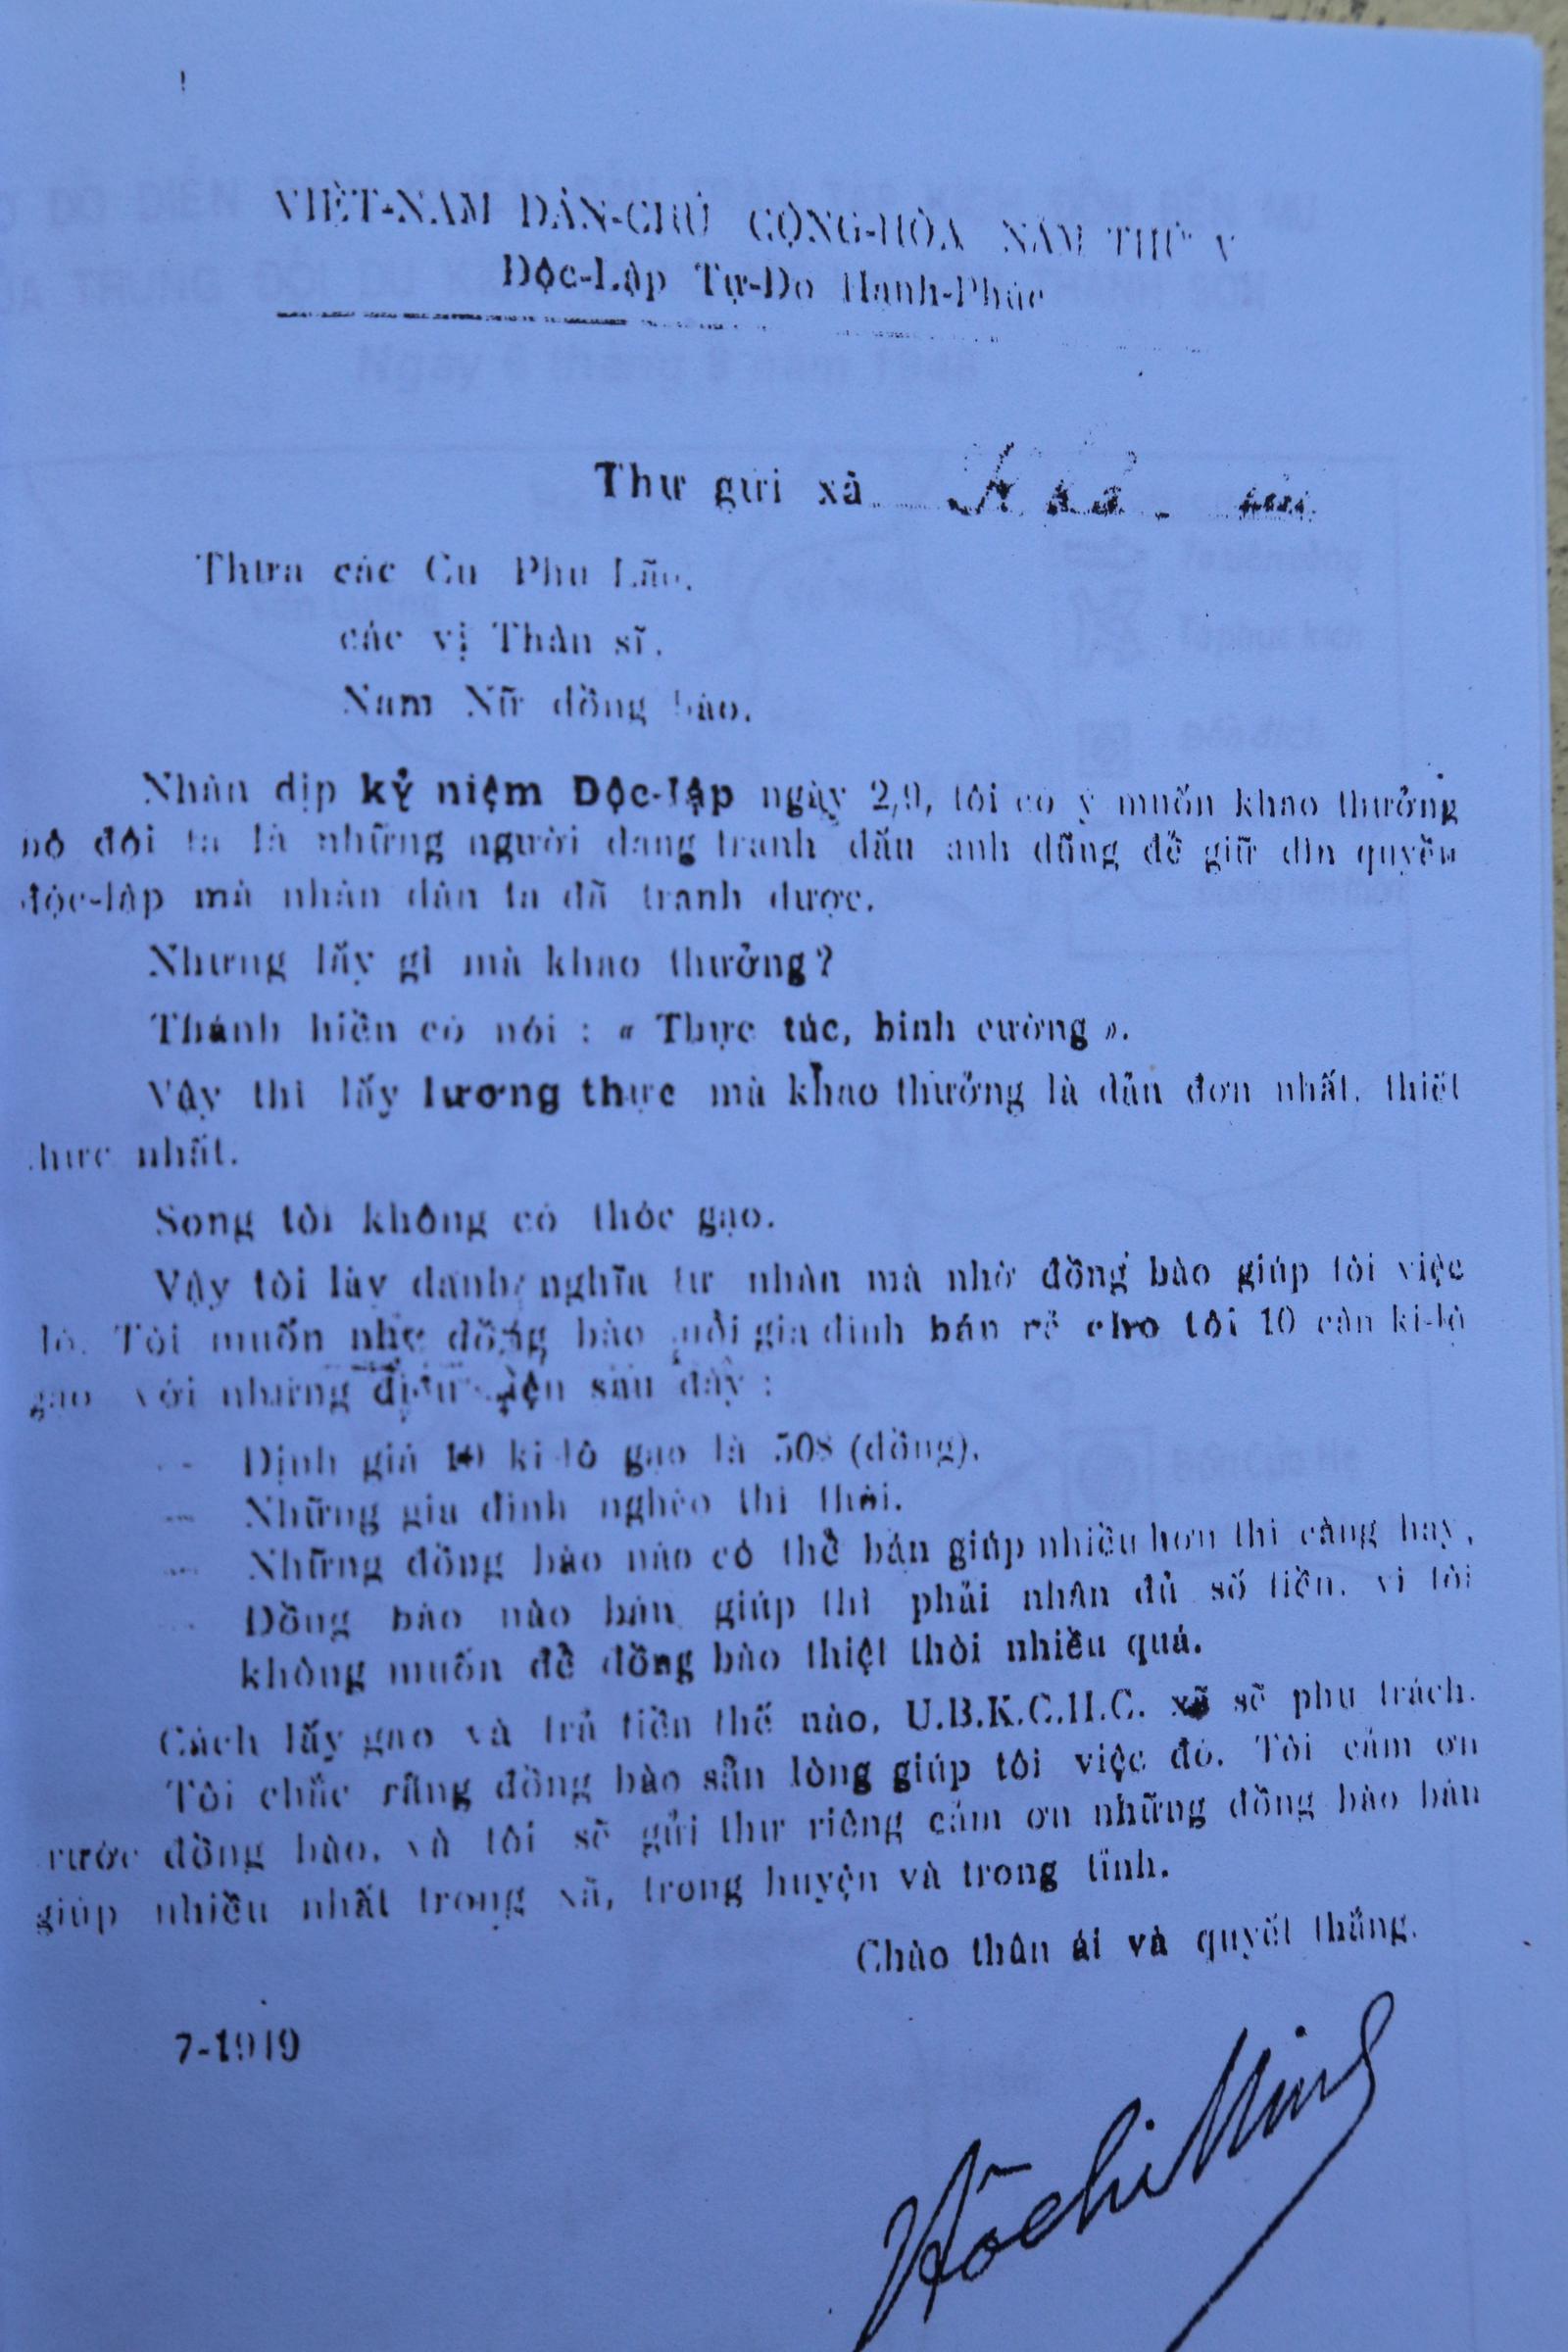 VIỆT-NAM DÂN-CHỦ CỘNG-HÒA NĂM THỨ V
Độc-Lập Tự-Do Hạnh-Phúc
Thư gửi xã
Thưa các Cụ Phụ Lão,
các vị Thân sĩ,
Nam Nữ đồng bào,
Nhân dịp kỷ niệm Độc-lập ngày 2/9, tôi có ý muốn khao thưởng
bộ đội ta là những người đang tranh đấu anh dũng để giữ gìn quyền
độc-lập mà nhân dân ta đã tranh được.
Nhưng lấy gì mà khao thưởng?
Thánh hiền có nói : « Thực túc, binh cường ».
Vậy thì lấy lương thực mà khao thưởng là dản đơn nhất, thiết
thực nhất.
Song tôi không có thóc gạo.
Vậy tôi lấy danh nghĩa tư nhân mà nhờ đồng bào giúp tôi việc
đó. Tôi muốn nhờ đồng bào mỗi gia đình bán rẻ cho tôi 10 cân ki-lô
gạo với những điều kiện sau đây :
— Định giá 10 ki-lô gạo là 50$ (đồng).
— Những gia đình nghèo thì thôi.
— Những đồng bào nào có thể bán giúp nhiều hơn thì càng hay,
— Đồng bào nào bán giúp thì phải nhận đủ số tiền, vì tôi
không muốn để đồng bào thiệt thòi nhiều quá.
Cách lấy gạo và trả tiền thế nào, U.B.K.C.H.C. xã sẽ phụ trách.
Tôi chắc rằng đồng bào sẵn lòng giúp tôi việc đó. Tôi cảm ơn
trước đồng bào, và tôi sẽ gửi thư riêng cảm ơn những đồng bào bán
giúp nhiều nhất trong xã, trong huyện và trong tỉnh.
Chào thân ái và quyết thắng.
7-1949
Hồ Chí Minh